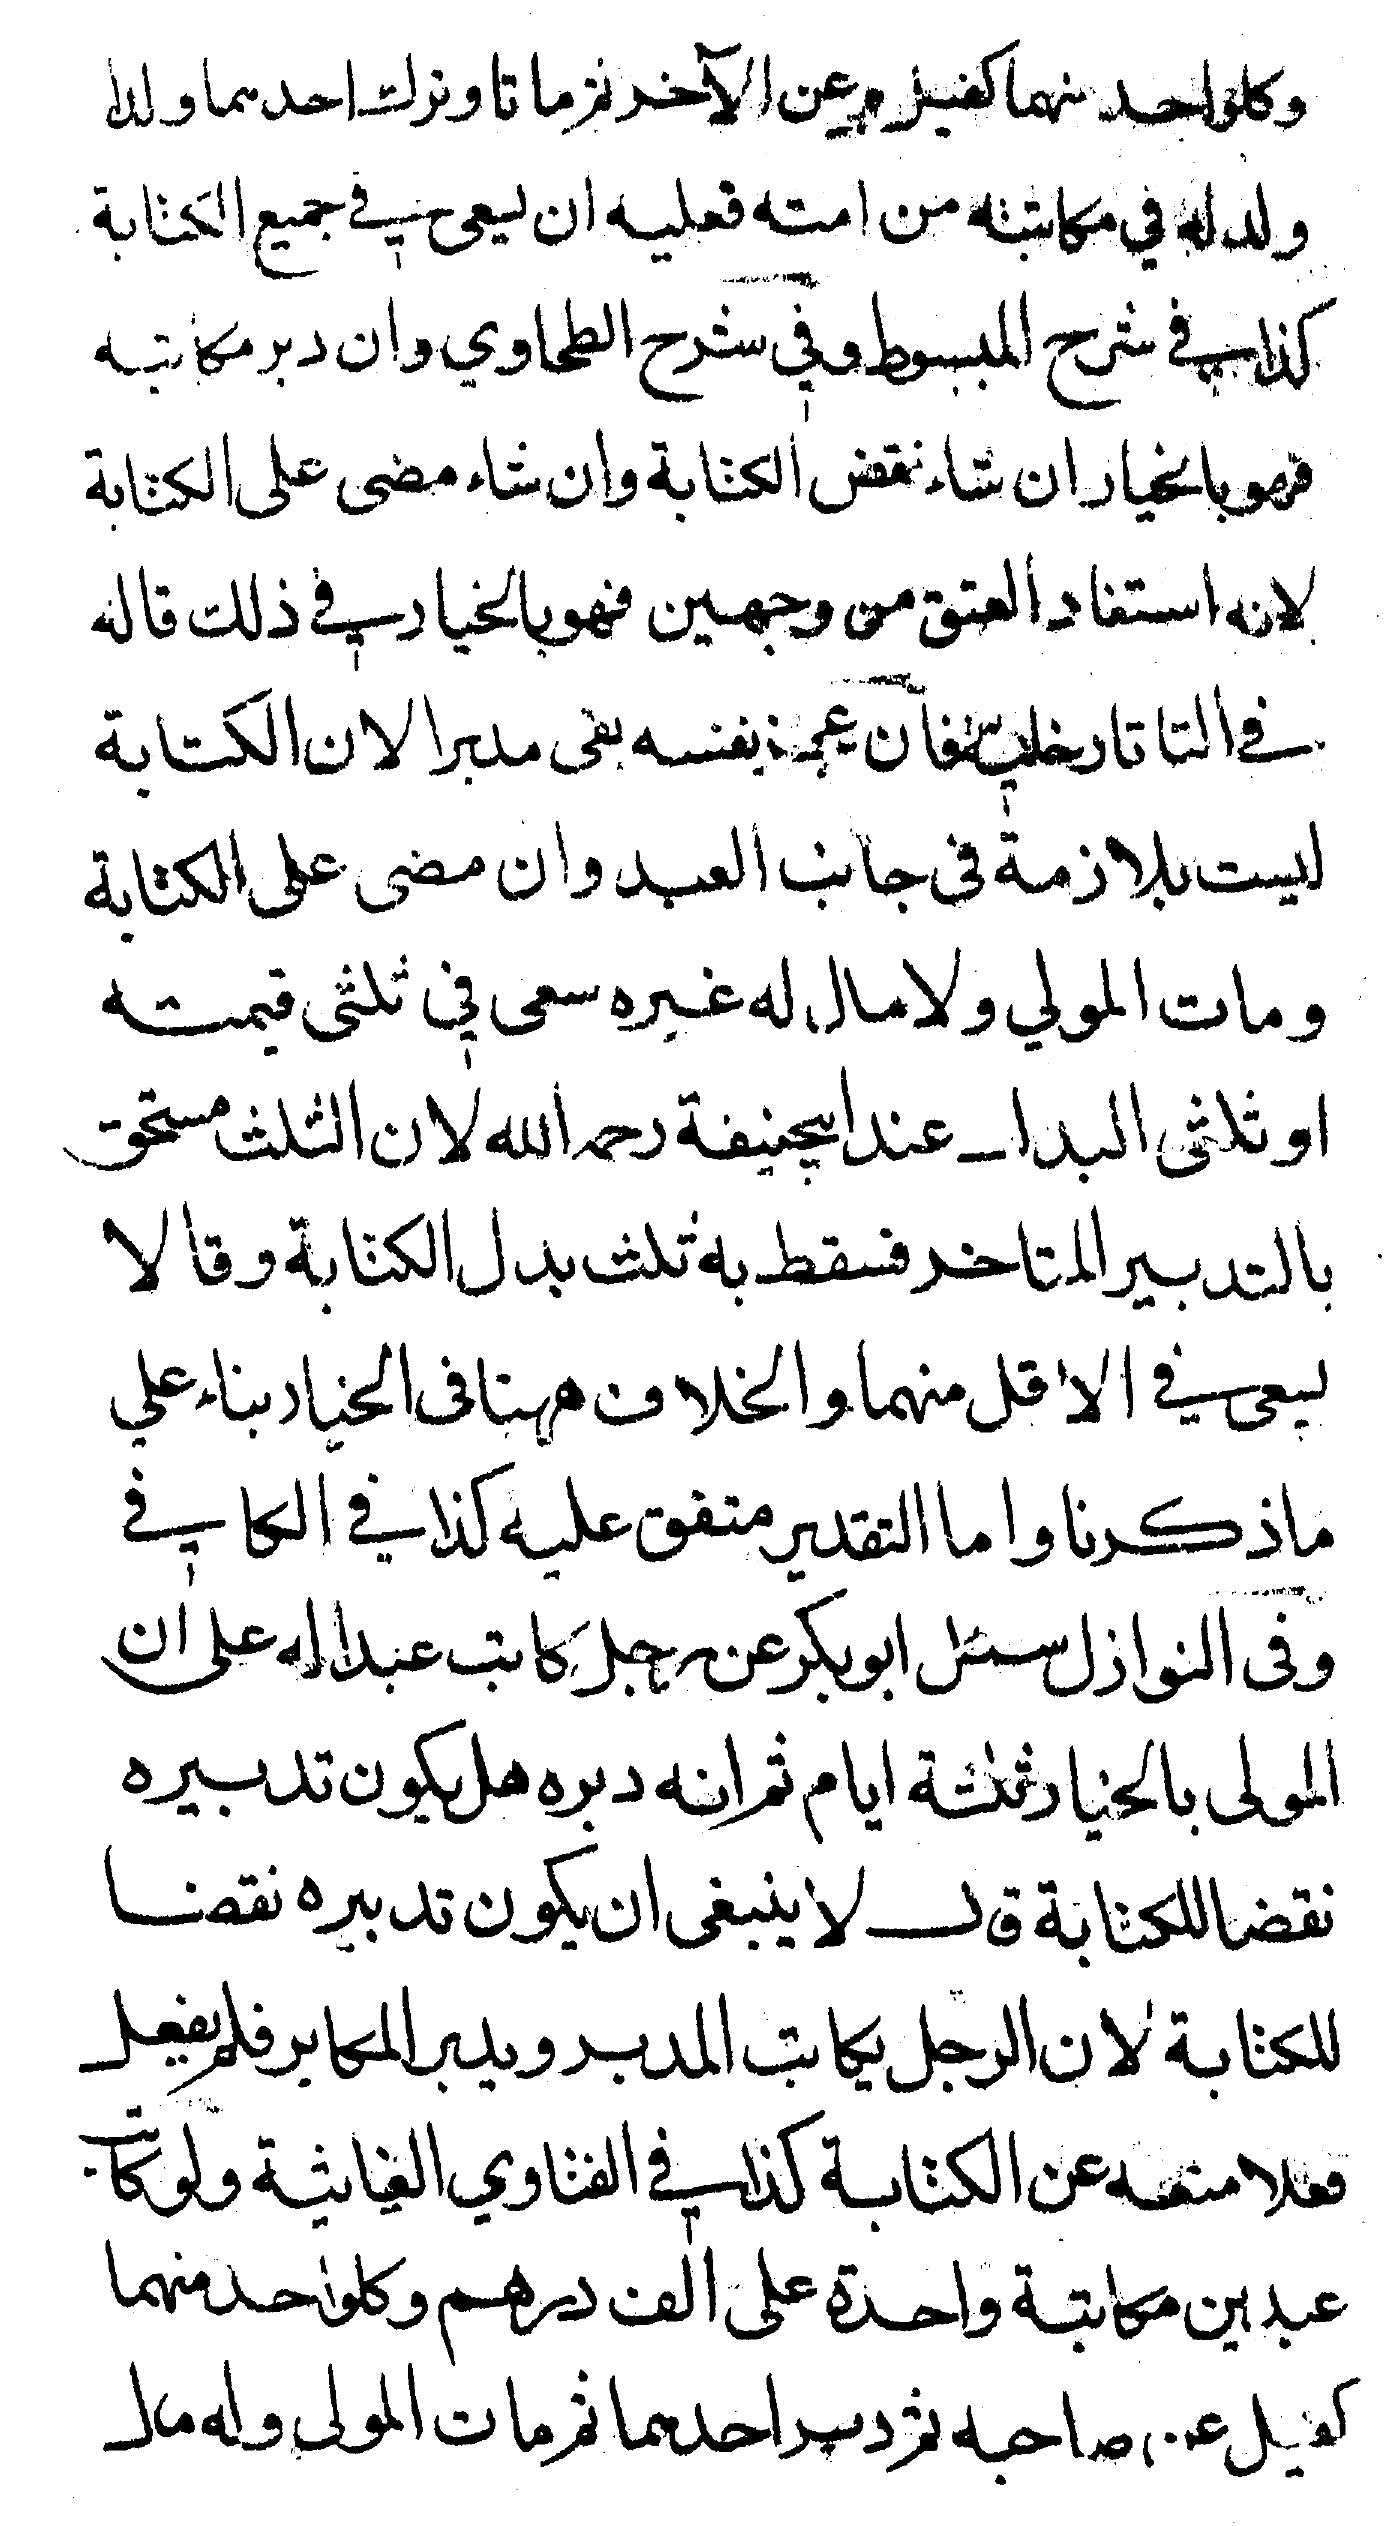 وكلواحد منهما كفيل عن الآخر ثم ماتا وترك احدهما ولدا
ولد له في مكاتبته من امته فعليه ان يسعى في جميع الكتابة
كذا في شرح المبسوط وفي شرح الطحاوي وان دبر مكاتبه
فهو بالخيار ان شاء نقض الكتابة وان شاء مضى على الكتابة
لانه استفاد العتق من وجهين فهو بالخيار في ذلك قاله
في التاتارخانية فان عجز بنفسه بقى مدبرا لان الكتابة
ليست بلازمة في جانب العبد وان مضى على الكتابة
ومات المولي ولا مال له غيره سعى في ثلثى قيمته
او ثلثى البدل عند ابيحنيفة رحمه الله لان الثلث مستحق
بالتدبير المتاخر فسقط به ثلث بدل الكتابة وقالا
يسعى في الاقل منهما والخلاف ههنا فى الخيار بناء علي
ما ذكرنا واما التقدير متفق عليه كذا في الكافي
وفى النوازل سئل ابو بكر عن رجل كاتب عبدا له على ان
المولى بالخيار ثلثة ايام ثم انه دبره هل يكون تدبيره
نقضا للكتابة قال لا ينبغى ان يكون تدبيره نقضا
للكتابة لان الرجل يكاتب المدبر ويدبر المكاتب فلم يفعل
فعلا منعه عن الكتابة كذا في الفتاوي الغياثية ولو كاتب
عبدين مكاتبة واحدة على الف درهم وكلواحد منهما
كفيل عن صاحبه ثم دبر احدهما ثم مات المولى وله مال